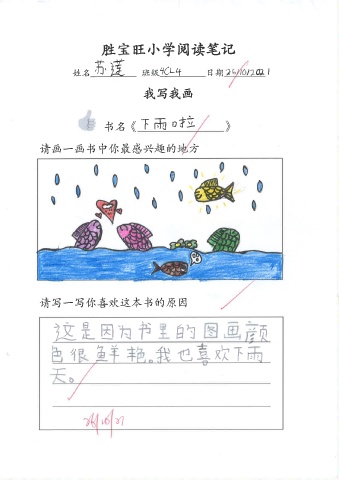 胜宝旺小学阅读笔记
姓名 苏莲 班级4CL4 日期25/10/2021
我写我画
书名《下雨啦》
请画一画书中你最感兴趣的地方
请写一写你喜欢这本书的原因
这是因为书里的图画颜
色很鲜艳。我也喜欢下雨
天。
26/10/21